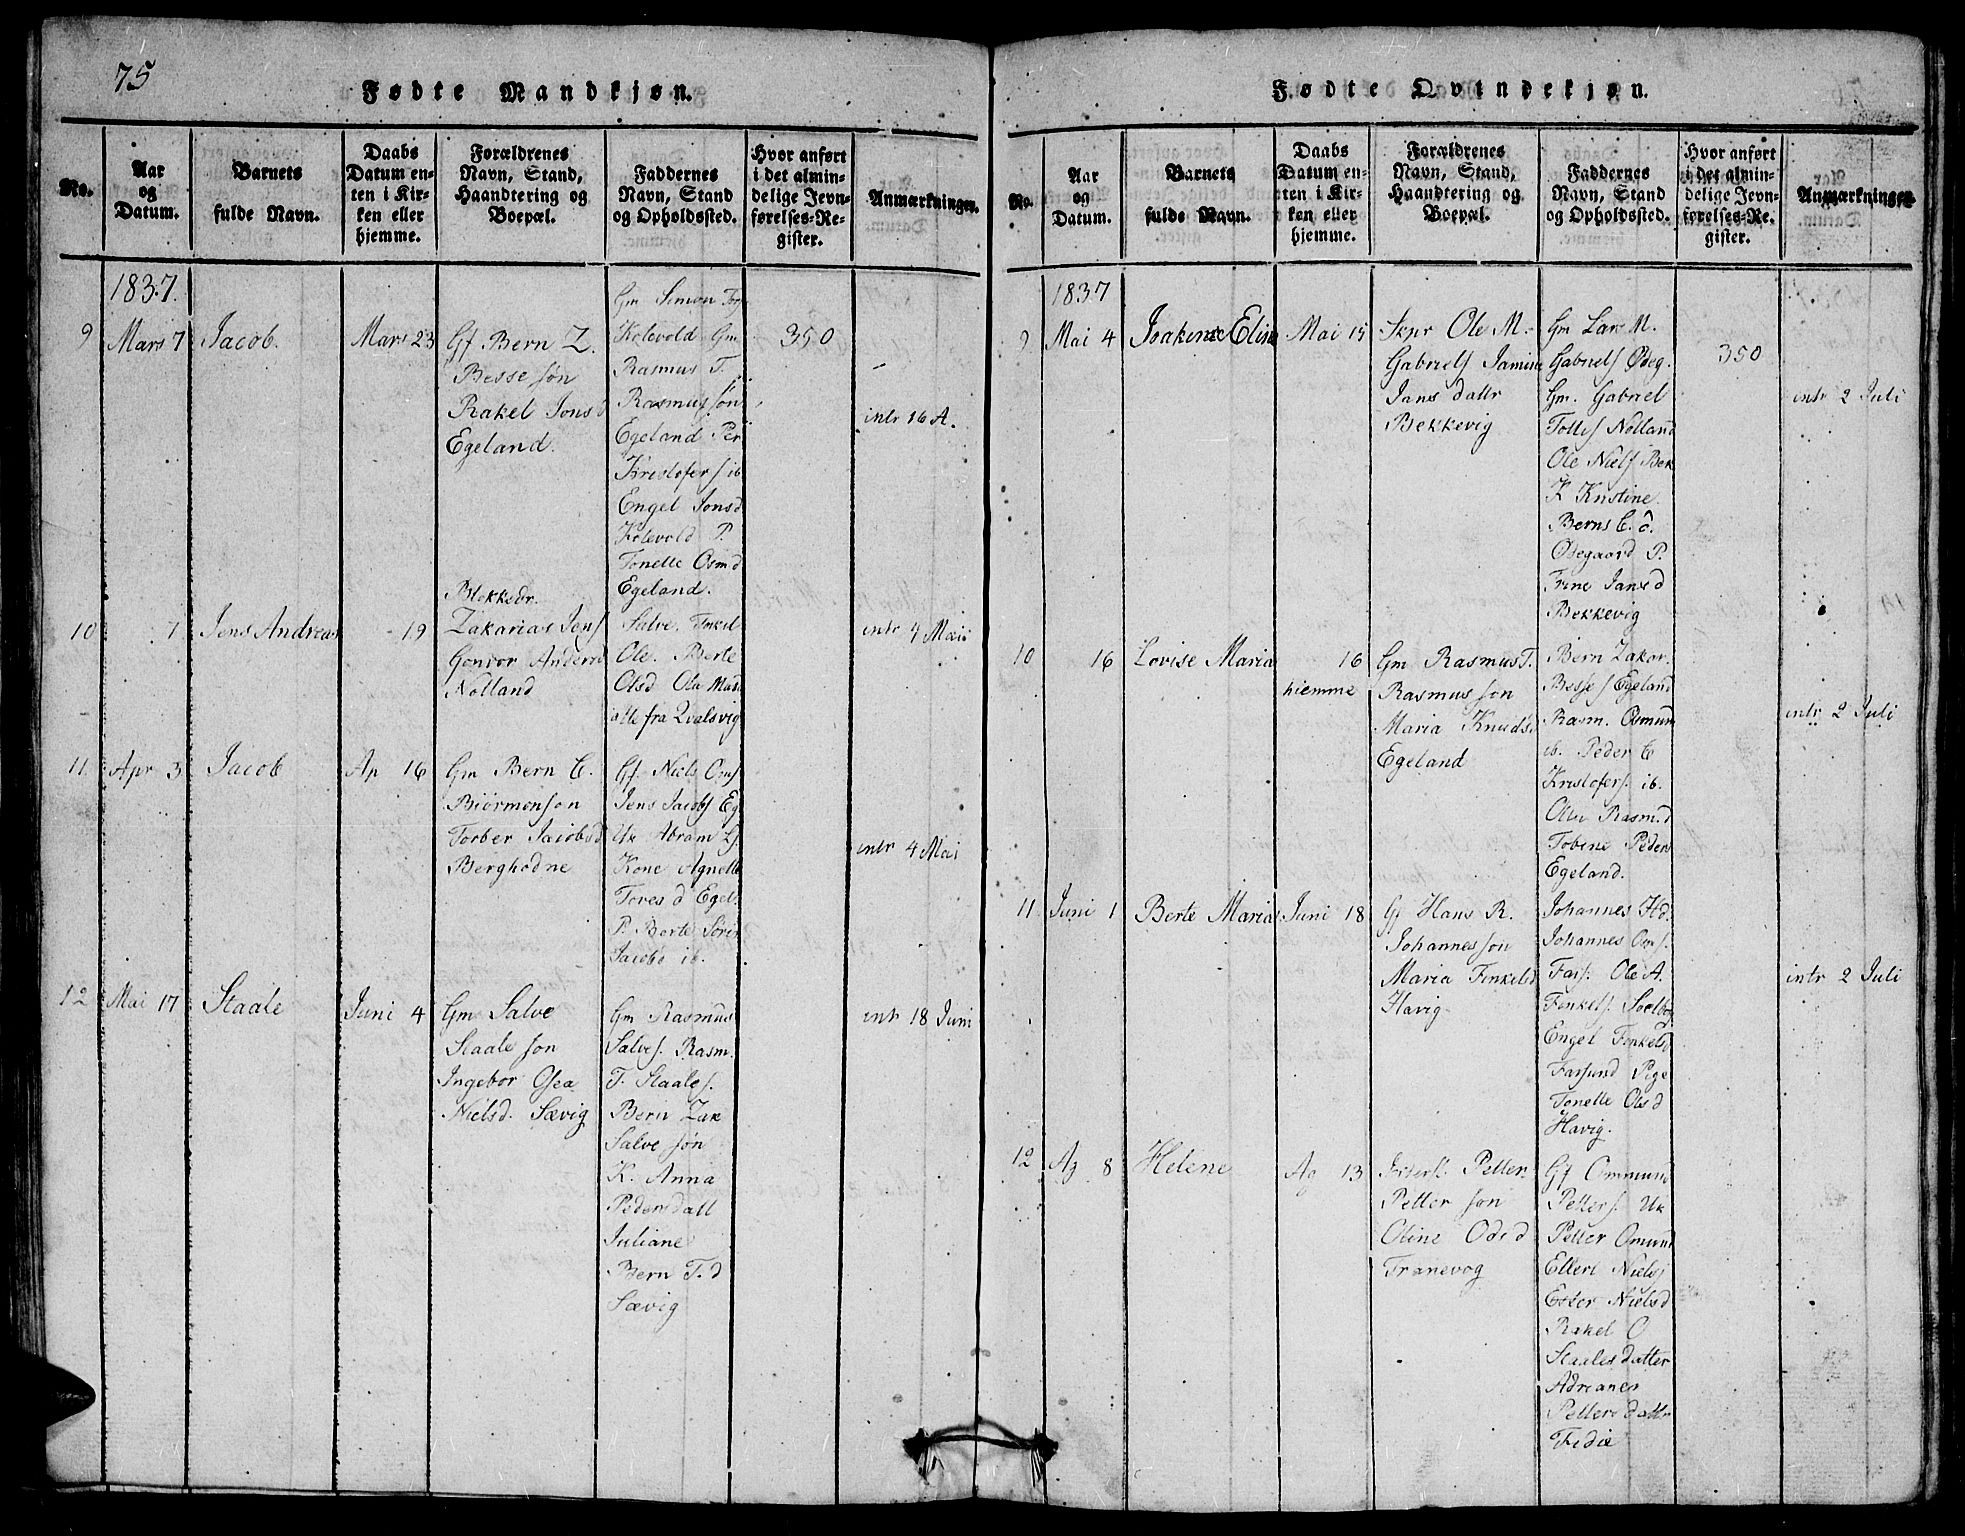 75
Fødte Mandkjøn.
No.
Aar
og
Datum.
Barnets
fulde Navn.
Daabs
Datum en-
ten i Kir-
ken eller
hjemme.
Forældrenes
Navn, Stand,
Haandtering og
Boepæl.
Faddernes
Navn, Stand
og Opholdssted.
Hvor anført
i det almin-
delige Jevn-
førelses-Re-
gister.
Anmærkninger.
1837.
9
Mars 7
Jacob.
Mars 23
Gf. Bern Z.
Besse søn
Rakel Jons d
Egeland.
Gm Simon
Kolevold Gm
Rasmus T.
Rasmus søn
Egeland Per
Kristofer s ib
Engel Jonsd
Kolevold P.
Tonette Osmd
Egeland.
350
intr 16 A.
10
7
Jens Andreas
19
Blokkedr.
Zakarias Jens
Gonvor Andersd
Nolland
Salve. Tnkel
Ole. Berte
Olsd Ola Mari
atte fra Qvalsvig
intr 4 Mai
11.
Apr 3
Jacob
Ap 16
Gm Bern C.
Biörmonson
Torber Jacobsd
Berghodne
Gf. Niels Oms
Jens Jacobs Eg
Uk Abram
Kone Agnette
Tores d Egel.
P. Berte Sören
Jacobs ib.
intr 4 Mai
12
Mai 17
Staale
Juni 4
Gm Salve
Staale son
Ingebor Osea
Nielsd. Sævig
Gm Rasmus
Salves. Rasm.
T. Staales.
Bern Zak
Salve søn
K. Anna
Pedersdatt
Juliane
Bern T. d
Sævig
intr 18 Juni
Fødte Qvindekjøn.
No.
Aar
og
Datum.
Barnets
fulde Navn.
Daabs
Datum en-
ten i Kir-
ken eller
hjemme.
Forældrenes
Navn, Stand,
Haandtering og
Boepæl.
Faddernes
Navn, Stand
og Opholdssted.
Hvor anført
i det almin-
delige Jevn-
førelses-Re-
gister.
Anmærkninger.
1837
9
Mai 4
Joakine Elin
Mai 15
Skpr Ole M.
Gabriels Jamine
Jans datter
Bekkevig
Gm Lars M.
Gabriels Ødeg.
Gm. Gabriel
Tollis Nolland
Ole Niels Bek
K Kristine
Berns C. d.
Ødegaard P.
Trine Jansd
Bekkevig
350
intr 2 Juli
10
16
Lovise Maria
16
hiemme
Gm Rasmus T.
Rasmus son
Maria Knudsd
Egeland
Bern Zakar.
Besse s Egeland
Rasm. Osmun
ib. Peder C
Kristofers. ib.
Olve Rasm.d
Tobine Peders
Egeland.
intr 2 Juli
11.
Juni 1
Berte Maria
Juni 18
Gf Hans R.
Johannes son
Maria Tinkelsd
Havig
Johannes Hd.
Johannes Oms.
Fars. Ole A.
Tonkels.
Engel Tonkelsd
Farsund Pige
Tonette Olsd
Havig.
intr 2 Juli
12
Ag 8
Helene
Ag 13
Petter
Petter son
Oline Odsd
Tranevog
Gf Ommund
Petters. Uk
Petter Omund
Ellert Niels
Ester Nielsd
Rakel O
Staalesdatter
Adriane
Pettersdatte
Fedie